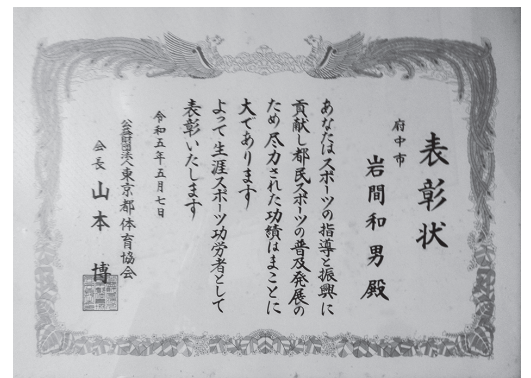 表彰状
府中市
岩間和男殿
あなたはスポーツの指導と振興に
貢献し都民スポーツの普及発展の
ため尽力された功績はまことに
大であります
よって生涯スポーツ功労者として
表彰いたします
令和五年五月七日
公益財団法人東京都体育協会
会長 山本博